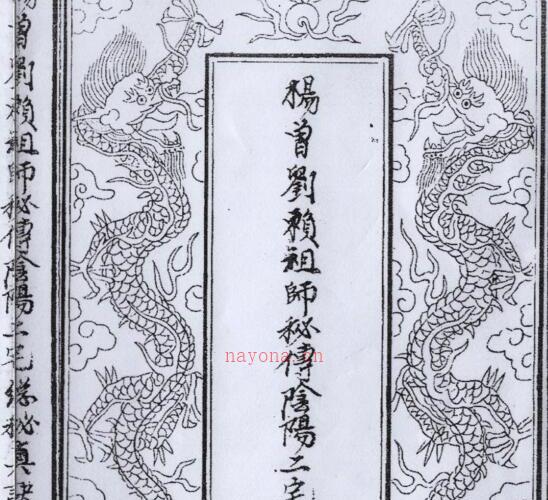 楊曾劉賴祖師秘傳陰陽二宅
楊曾劉賴祖師秘傳陰陽二宅總秘真訣
nayona.cn